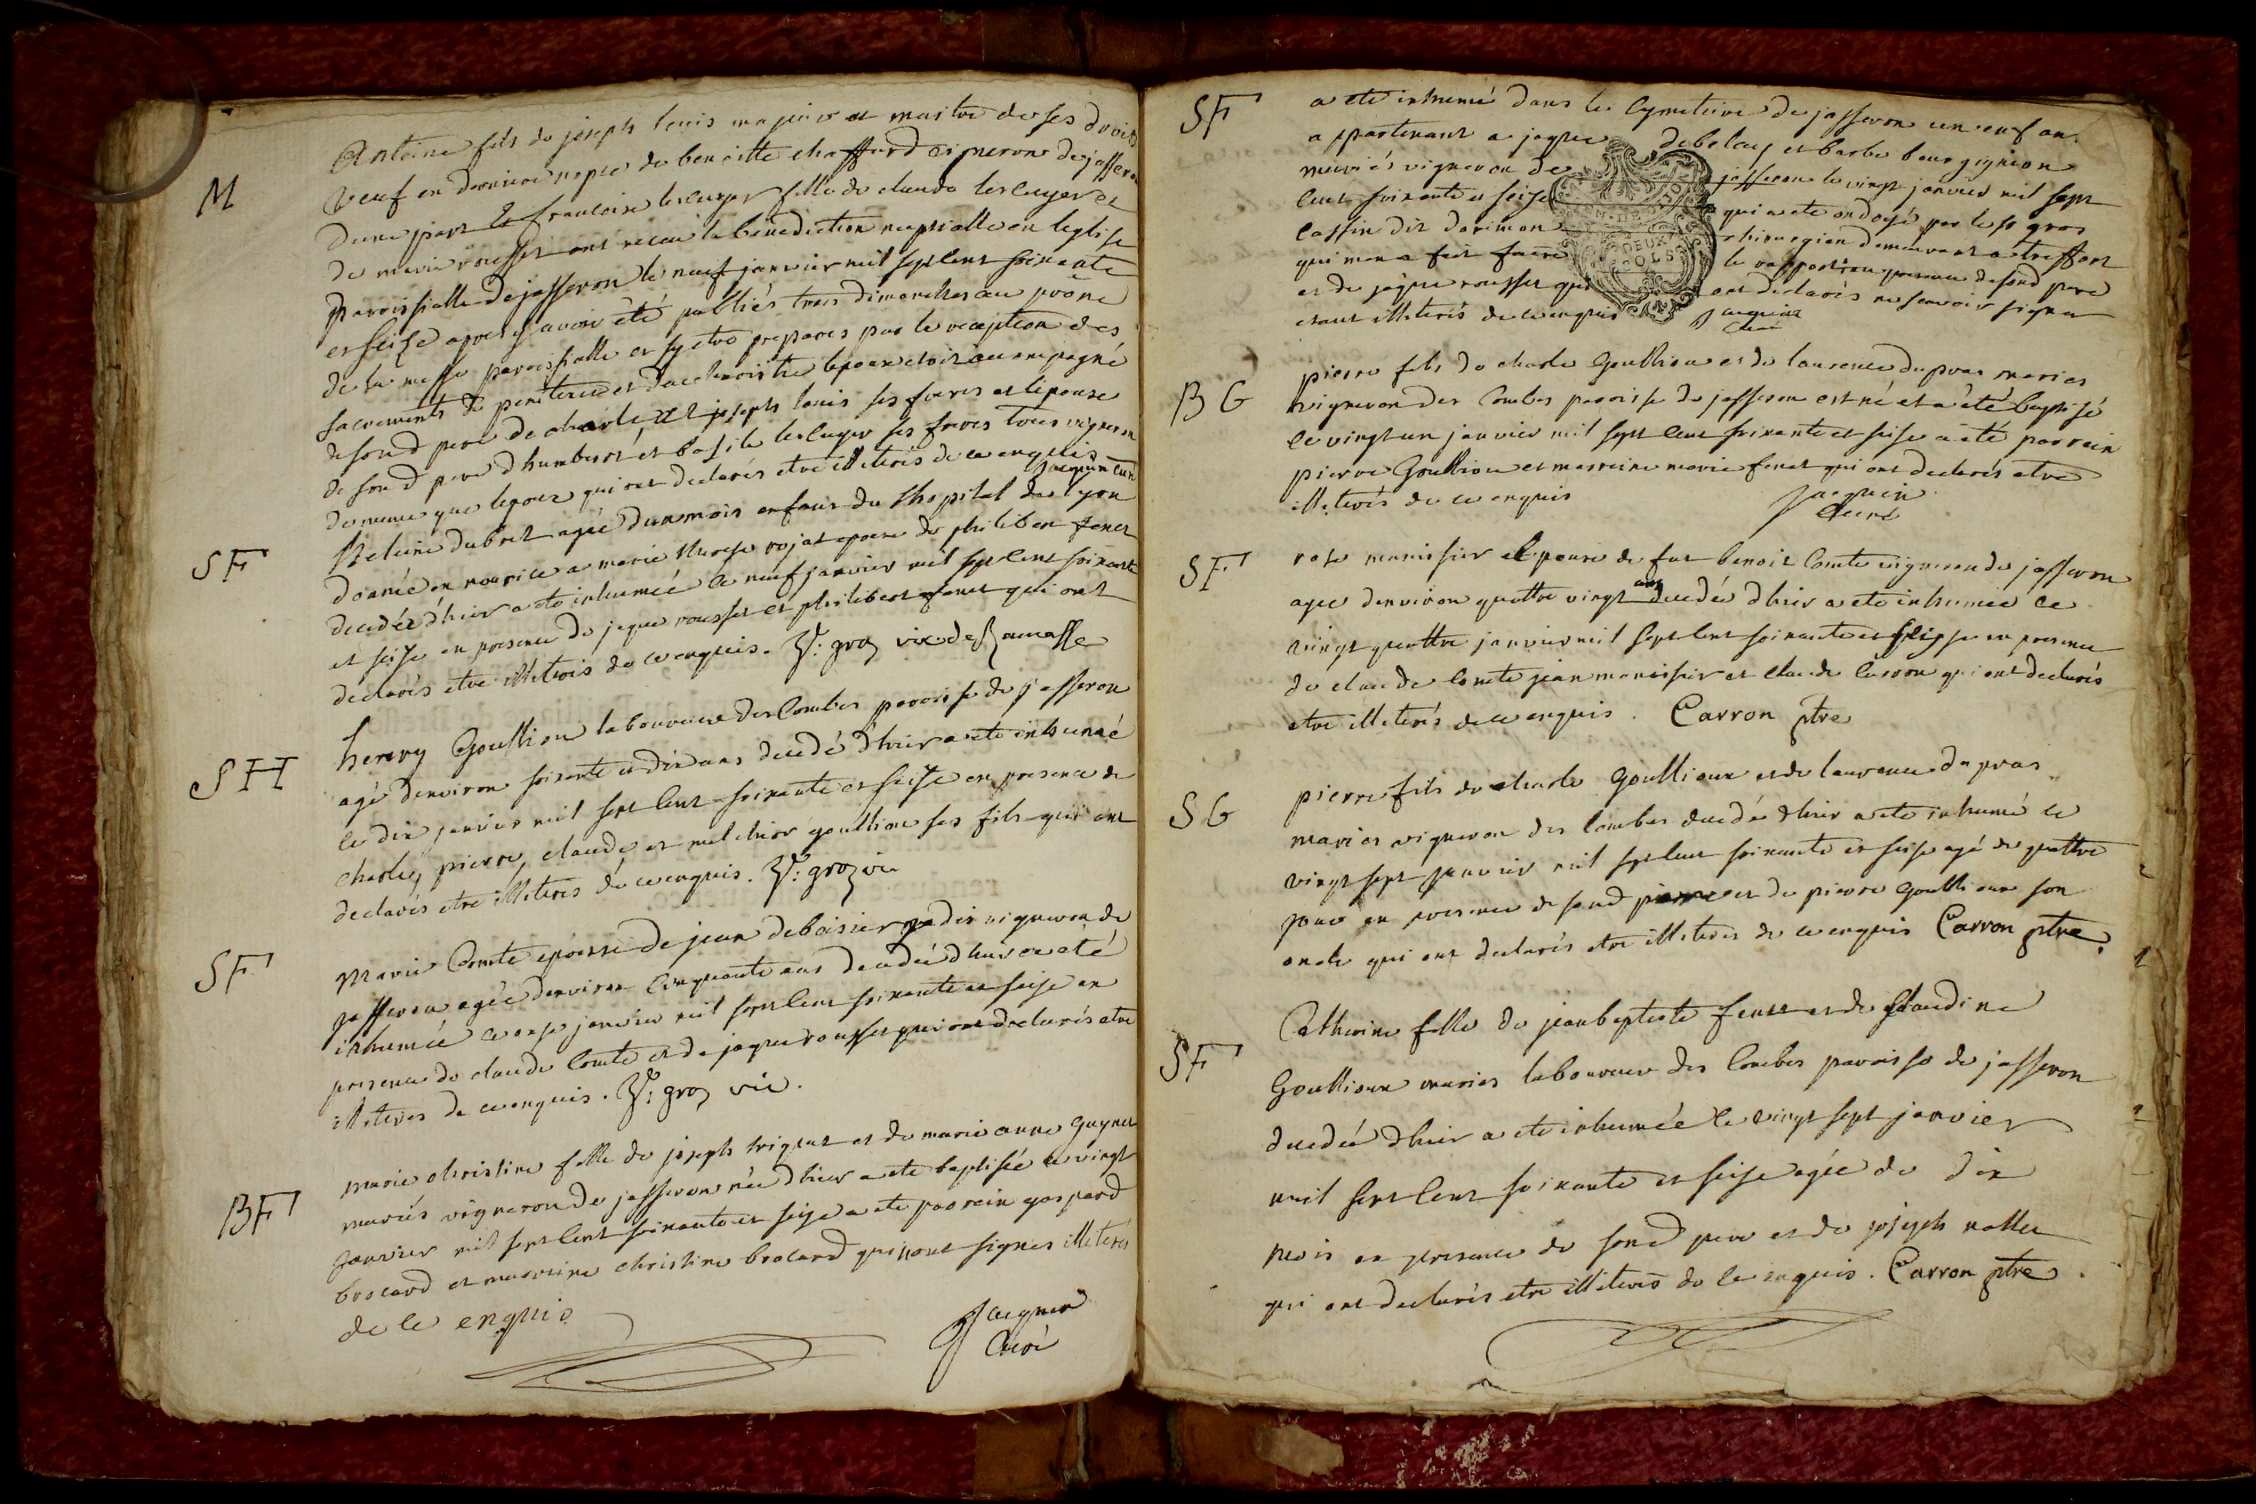 M
Antoine fils de joseph louis majeure et maitre de ses droits
veuf en derniere nopce de benoitte chaffard vigneron de jasseron
dune part et francoise lescuyer fille de claude lescuyer et
de marie rousset ont recu la benediction nuptialle en leglise
paroissialle de jasseron le neuf janvier mil sept cent soixante
et seize apres avoir été publiés trois dimanches au prône
de la messe paroissialle et sy etre preparés par la reception des
sacrements de penitence et deucharistie lepoux etoit accompagné
de son d pere de charle et joseph louis ses freres et lepouse
de son d pere dhumbert et basile lescuyer ses freres tous vignerons
de meme que lepoux qui ont declarés etre illiterés de ce enquis
jacquier curé
SF
dubret agée dun mois enfant de lhopital de lyon
donnée en nourice a marie epouse de philibert fenet
decedée dhier a ete inhumée le neuf janvier mil sept cent soixante
et seise en presence de jaque rousset et philibert fenet qui ont
declarés etre illiterés de ce enquis. gros vic de
SH
henry Goullion laboureur des Combes paroisse de jasseron
agé denviron soixante et dix ans decedé dhier a ete inhumé
le dix janvier mil sept cent soixante et seize en presence de
charle, pierre, claude et melchior goullion ses fils qui ont
declarés etre illiterés de ce enquis. gros vic
SF
Marie Comte epouse de jean debaisieux vigneron de
jasseron agée denviron cinquante ans decedée dhier a eté
inhumée ce onze janvier mil sept cent soixante et seise en
presence de claude Comte et de jaque rousset qui ont declarés etre
illiterés de ce enquis. gros vic.
BF
marie christine fille de joseph et de marie anne guynet
mariés vigneron de jasseron née dhier a ete baptisée le vingt
janvier mil sept cent soixante et seize a ete parrein gaspard
brocard et marreine christine brocard qui nont signes illiterés
de ce enquis
Jacquier
Curé
SF
a ete inhumé dans le Cymetiere de jasseron un enfant
appartenant a jaque debeley et barbe bourguignion
mariés vigneron de jasseron le vingt janvier mil sept
cent soixante et seise qui a ete ondoyé par le sr gros
dit chirurgien demeurant a treffort
qui men a fait faire le rapport en presence de son d pere
et de jaque rousset qui ont declarés ne scavoir signer
etant illiterés de ce enquis Jacquier
Curé
DEUX
SOLS
BG
pierre fils de charle Goullion et de laurence dupras mariés
vigneron des Combes paroisse de jasseron est né et a été baptisé
le vingt un janvier mil sept cent soixante et seise a été parrein
pierre Goullion et marreine marie fenet qui ont declarés etre
illiterés de ce enquis Jacquier
Curé
SF
rose manissier epouse de fut benoit Comte vigneron de jasseron
agée denviron quattre vingt ans decedée dhier a ete inhumée le
vingt quattre janvier mil sept cent soixante et seisse en presence
de claude Comte jean manissier et claude qui ont declarés
etre illiterés de ce enquis. Carron ptre
SG
pierre fils de charle Goullioux et de laurence dupras
mariés vigneron des Combes decedé dhier a ete inhumé le
vingt sept janvier mil sept cent soixante et seise agé de quattre
jours en presence de son d pere et de pierre Goullioux son
oncle qui ont declarés etre illiterés de ce enquis Carron ptre.
SF
Catherine fille de jean baptiste fenet et de claudine
Goullioux mariés laboureur des Combes paroisse de jasseron
decedée dhier a ete inhumée le vingt sept janvier
mil sept cent soixante et seise agée de dix
mois en presence de son d pere et de joseph
qui ont declarés etre illiterés de ce enquis. Carron ptre.